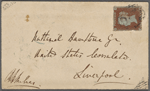 Nathaniel Hawthorne Esq
United States Consulate
Liverpool